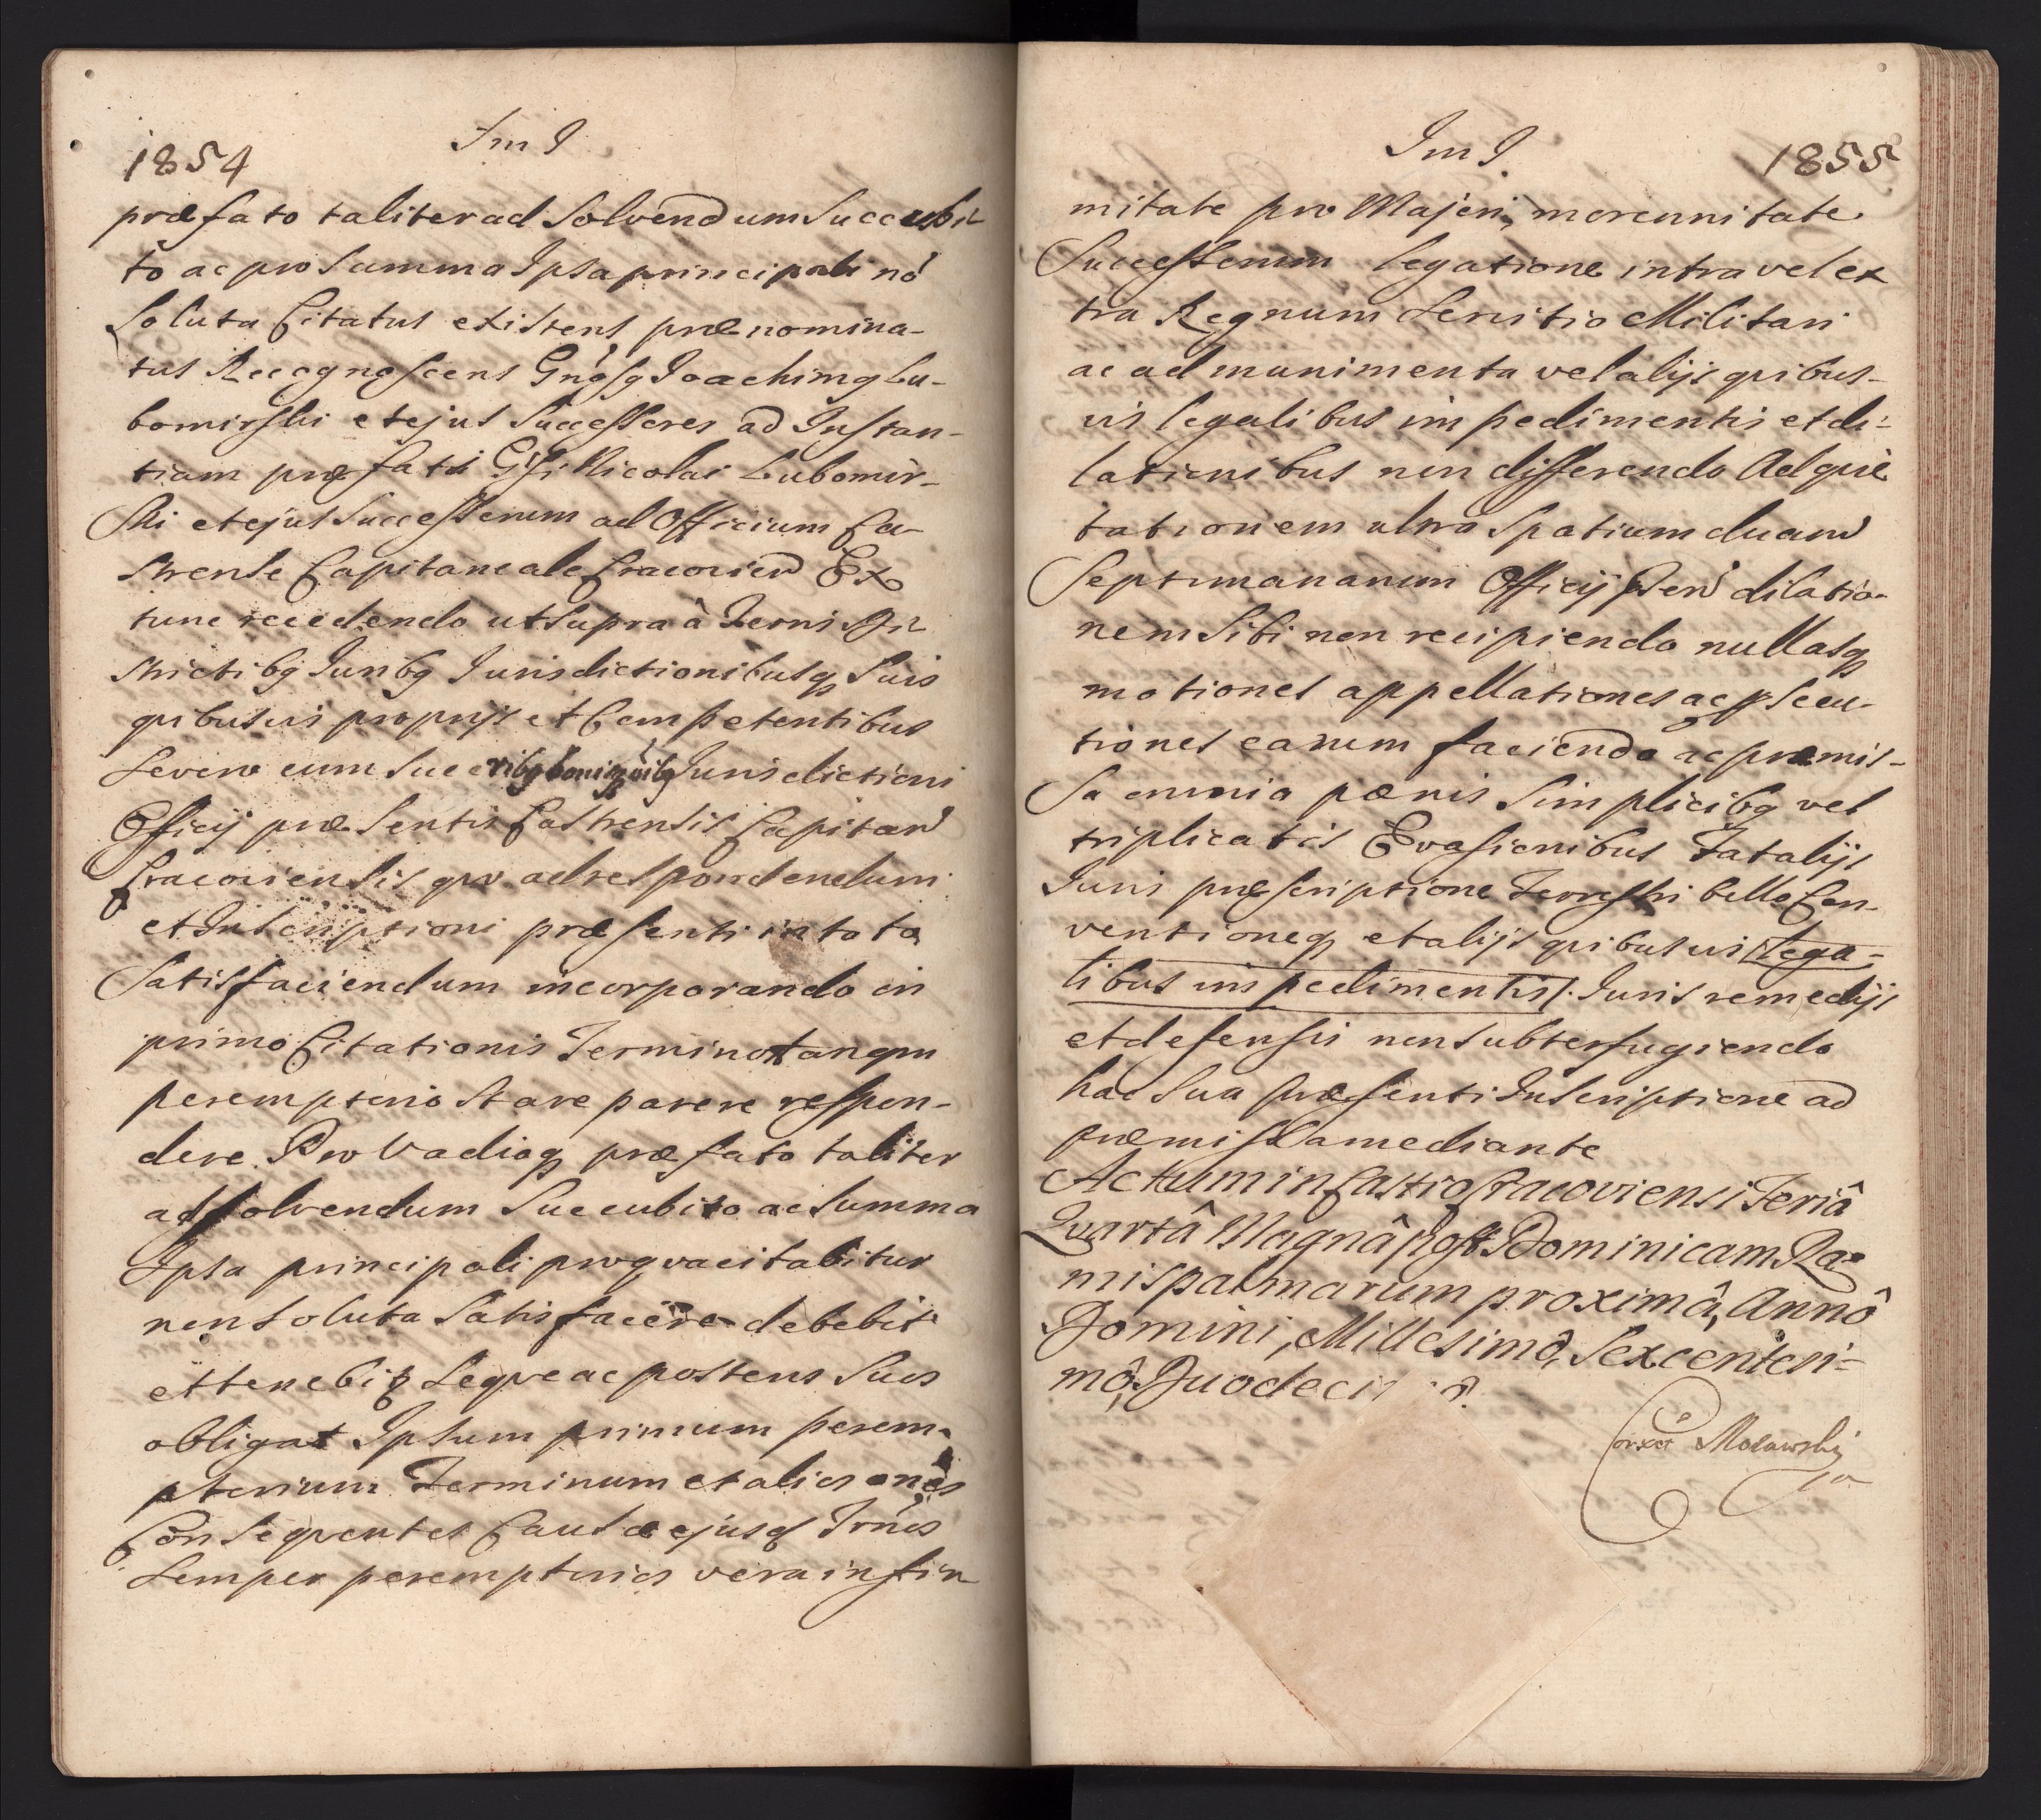 1854
Im I
præfato taliter ad Solvendum Succubi-
to ac pro Summa Ipsa principali nō
Soluta Citatus existens prænomina-
tus Recognoscens Gnōsq Joachimq Lu-
bomirski et ejus Successores ad Instan-
tiam præfati Gsi Nicolai Lubomir-
ski et ejus Successorum ad Officium Ca-
strense Capitaneale Cracovien Ex
tunc recedendo ut Supra à Terris Di-
strictibq Juribq Jurisdictionibusq Suis
quibusvis proprijs et Competentibus
Severo cum Succribq bonisq oibq Jurisdictioni
Officij præsentis Castrensis Capitan
Cracoviensis quo ad respondendum
et Inscriptioni præsenti in toto
Satisfaciendum incorporando in
primo Citationis Termino tanqm
peremptorio Stare parere respon-
dere Pro Vadioq præfato taliter
ad Solvendum Succubito ac Summa
Ipsa principali pro qva citabitur
non Soluta Satisfacere debebit
et tenebit Seqve ac posteros Suos
obligat Ipsum primum perem-
ptorium Terminum et alios ones
Conseqventes Causæ ejusq Trnos
Semper peremptorios vera infir-
Im I
1855
mitate pro Majori, morennitate
Successorum legatione intra vel ex
tra Regnum Servitio Militari
ac ad munimenta vel alijs quibus-
vis legalibus impedimentis et di-
lationibus non differendo Ad quie
tationem ultra Spatium duarū
Septimanarum Officij Pden dilatio-
nem Sibi non recipiendo nullasq
motiones appellationes ac pSecu-
tiones earum faciendo ac præmis-
Sa omnia pœnis Simplicibq vel
triplicatis Evasionibus Fatalijs
Juris præscriptione Terrestri bello Con-
ventioneq et alijs quibusvis /:lega-
libus impedimentis/: Juris remedijs
et defensis non subterfugiendo
hac Sua præsenti Inscriptione ad
præmissa mediante
Actum in Castro Cracoviensi Feriâ
Qvartâ Magnâ Post Dominicam Ra-
mispalmarum proximâ, Annô
Domini, Millesimô, Sexcentesi-
mô, Duodeci